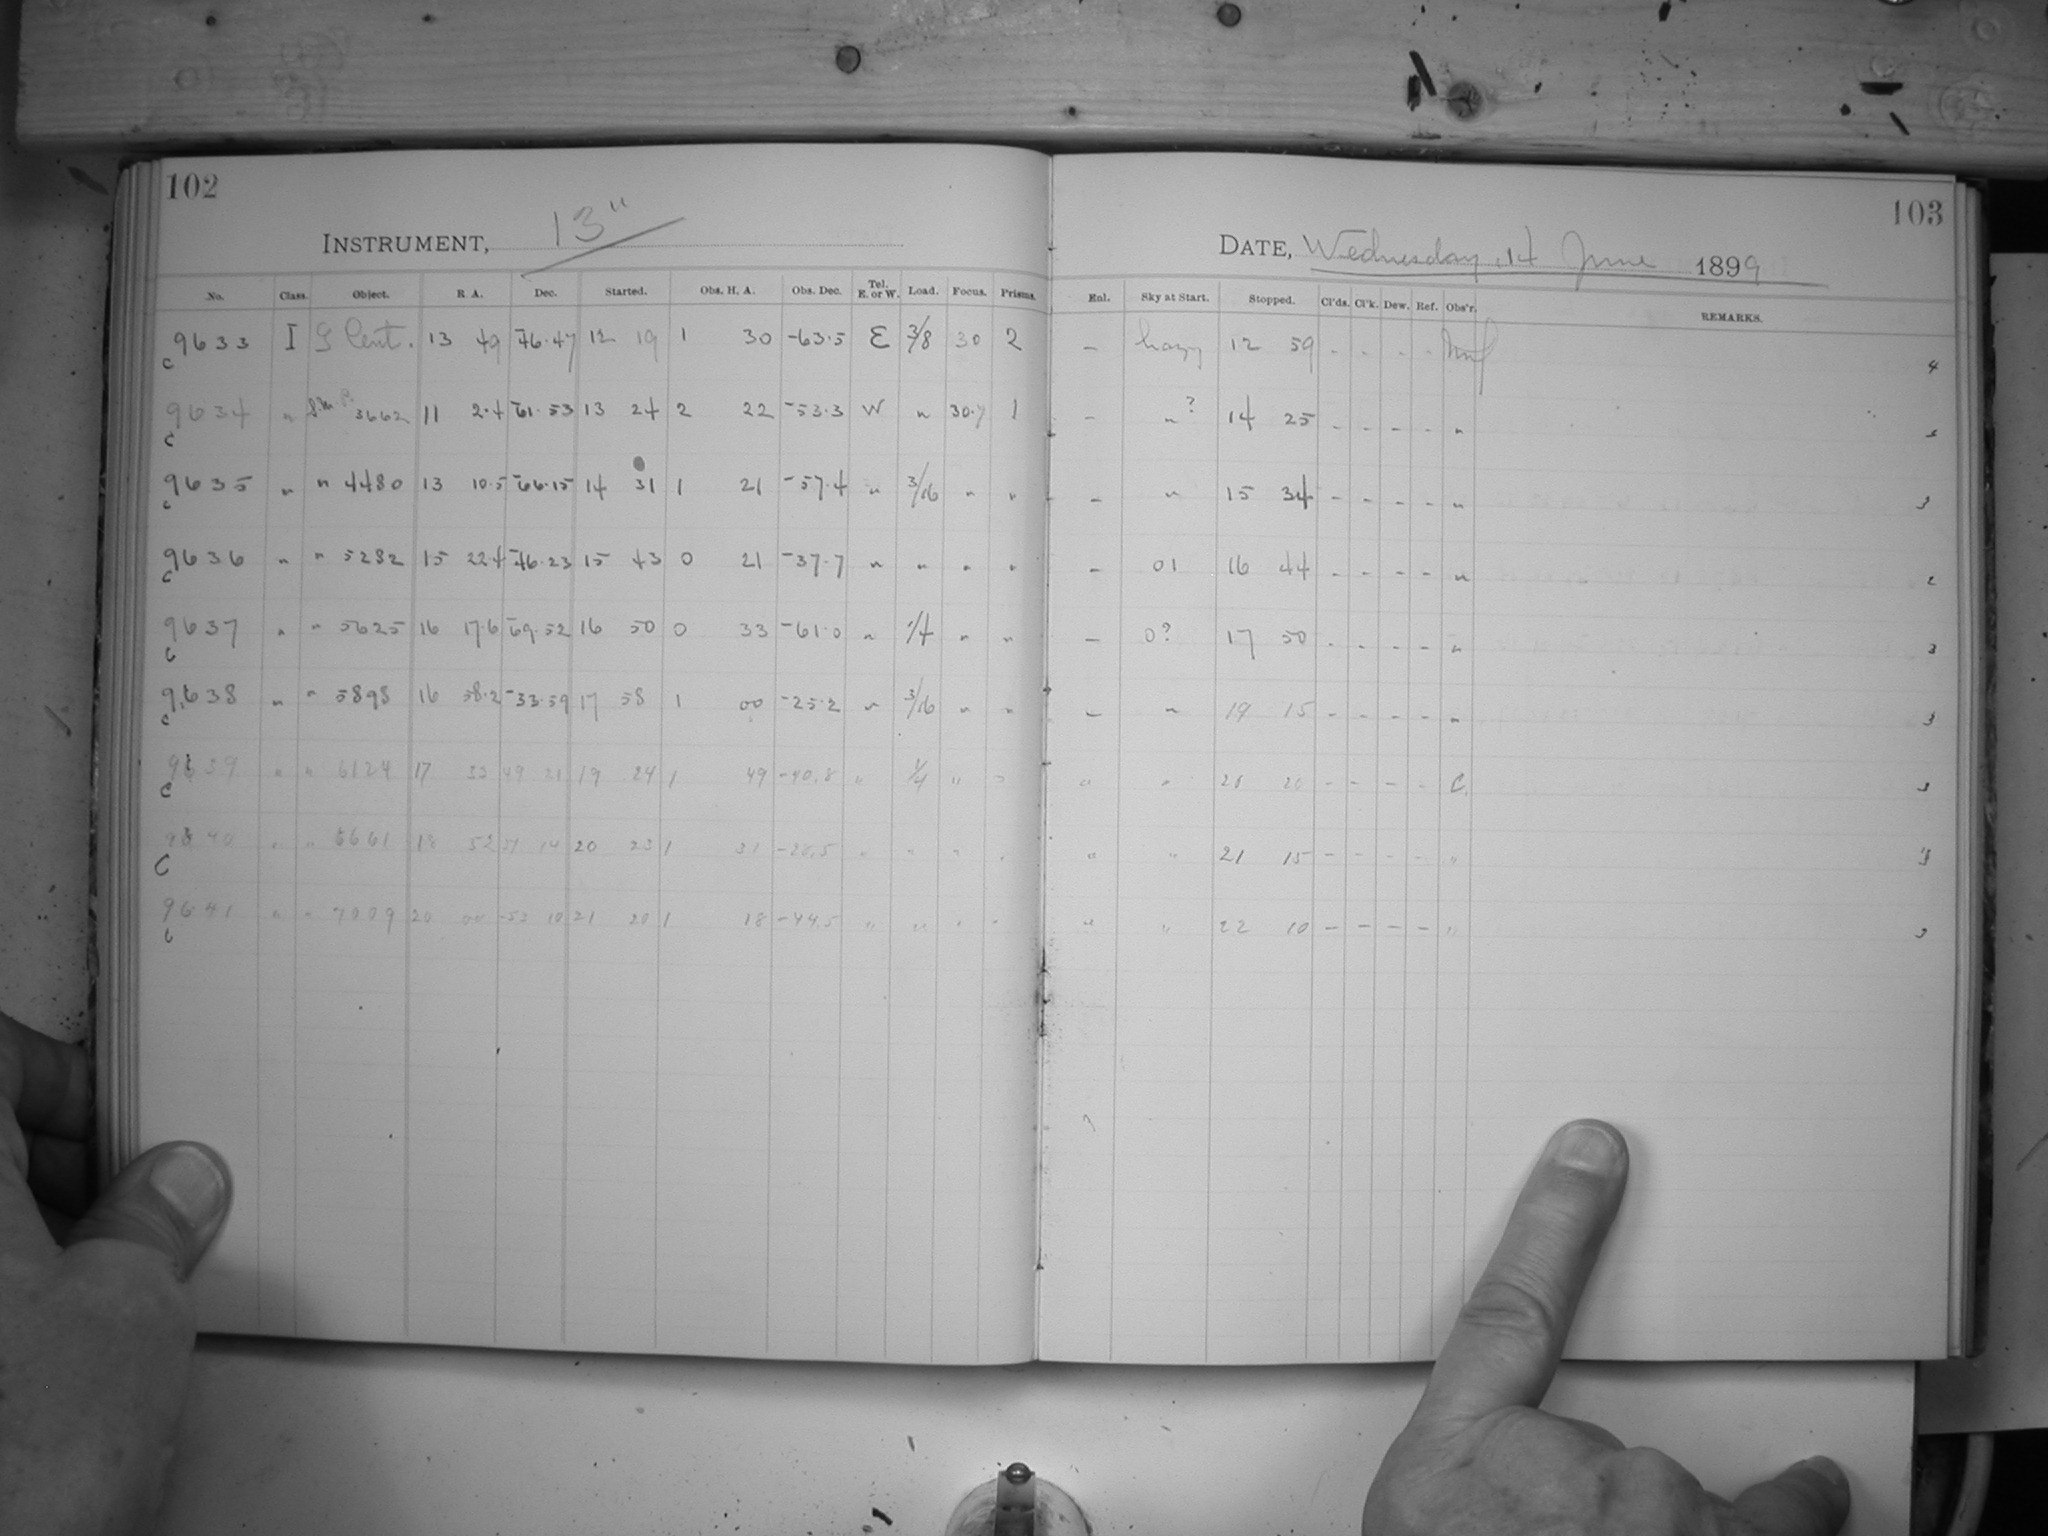 102
INSTRUMENT, 13"
No. Class. Object. R A. Dec. Started. Obs. H. A. Obs. Dec. Tel. E. or W. Load. Focus. Prisms.
9633 I Cent. 13 49 -46.47 12 19 1 30 -63.5 E 3/8 30 2
c
9634 " 3662 11 2.4 -61.53 13 24 2 22 -53.3 W " 30.7 1
c
9635 " " 4480 13 10.5 -66.15 14 31 1 21 -57.4 " 3/16 " "
c
9636 " " 5282 15 22.4 -46.23 15 43 0 21 -37.7 " " " "
c
9637 " " 5625 16 17.6 -69.52 16 50 0 33 -61.0 " 1/4 " "
c
9638 " " 5898 16 58.2 -33.59 17 58 1 00 -25.2 " 3/16 " "
c
9639 " " 6124 17 33 49 21 19 24 1 49 -40.8 " 1/4 " "
c
" " 6661 18 52 14 20 23 1 31 " " " "
C
9641 " " 7009 20 00 -52 10 21 20 1 18 -44.5 " " " "
c
103
DATE, Wednesday, 14 June 1899
Enl. Sky at Start. Stopped. Cl'ds. Cl'k. Dew. Ref. Obs'r. REMARKS.
- hazy 12 59 - - - - 4
- " ? 14 25 - - - - "
- " 15 34 - - - - " 3
- 01 16 44 - - - - " 2
- 0? 17 50 - - - - " 3
- " 19 15 - - - - " 3
" " 20 - - - - C. 3
" " 21 15 - - - - " 3
" " 22 10 - - - - " 3